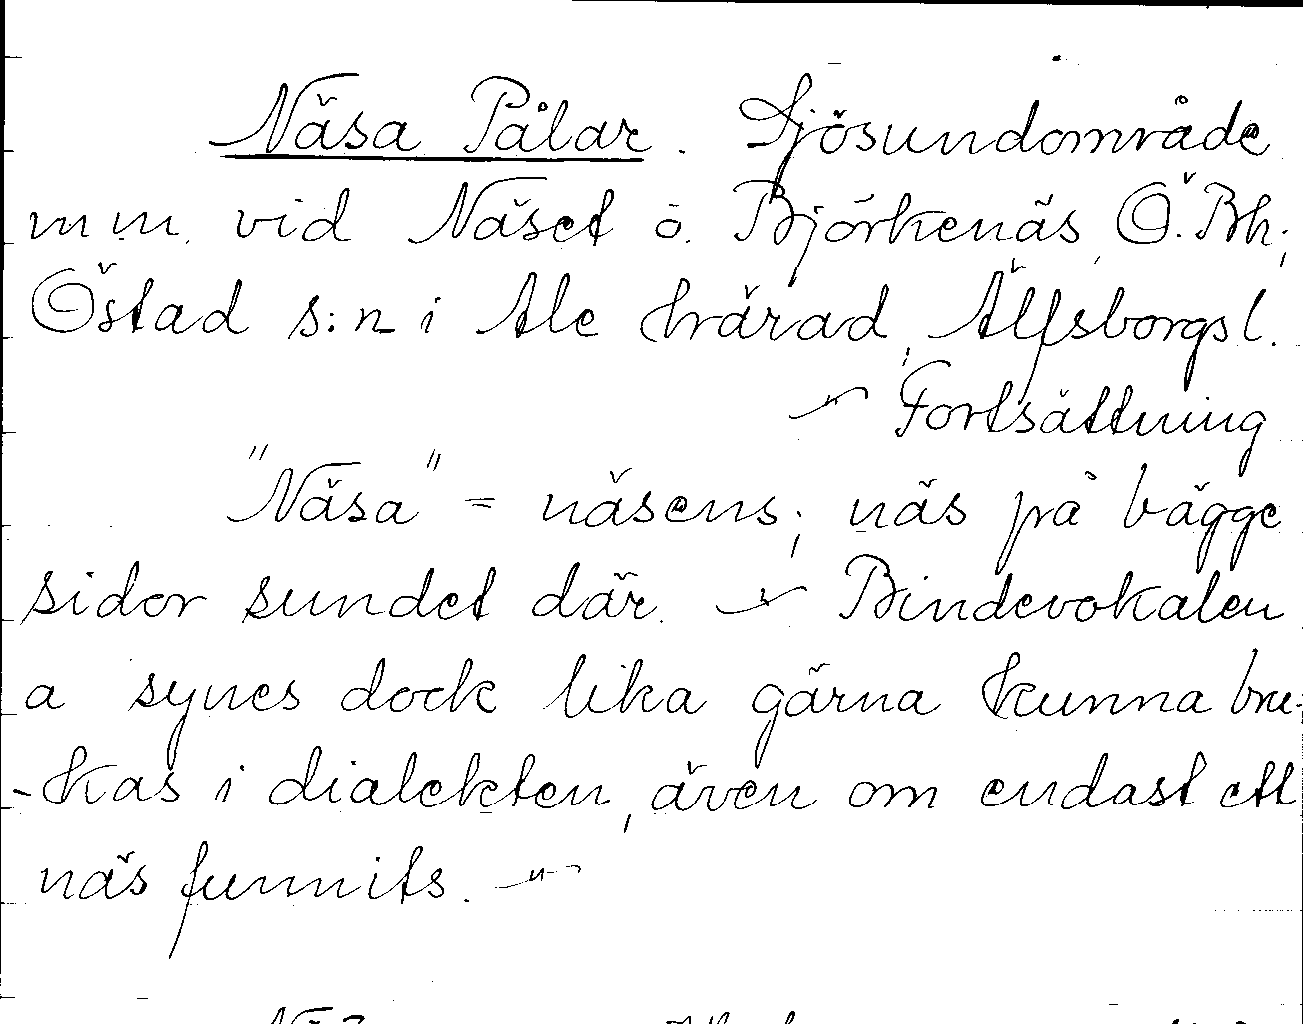 Näsa Pålar. Sjösundområde
m m. vid Näset ö. Björkenäs, Ö. Bh;
Östad s:n i Ale härad, Älfsborgs l.
~ Fortsättning
"Näsa" = näsens; näs på bägge
sidor sundet där. ~ Bindevokalen
a synes dock lika gärna kunna bru-
-kas i dialekten, även om endast ett
näs funnits. ~